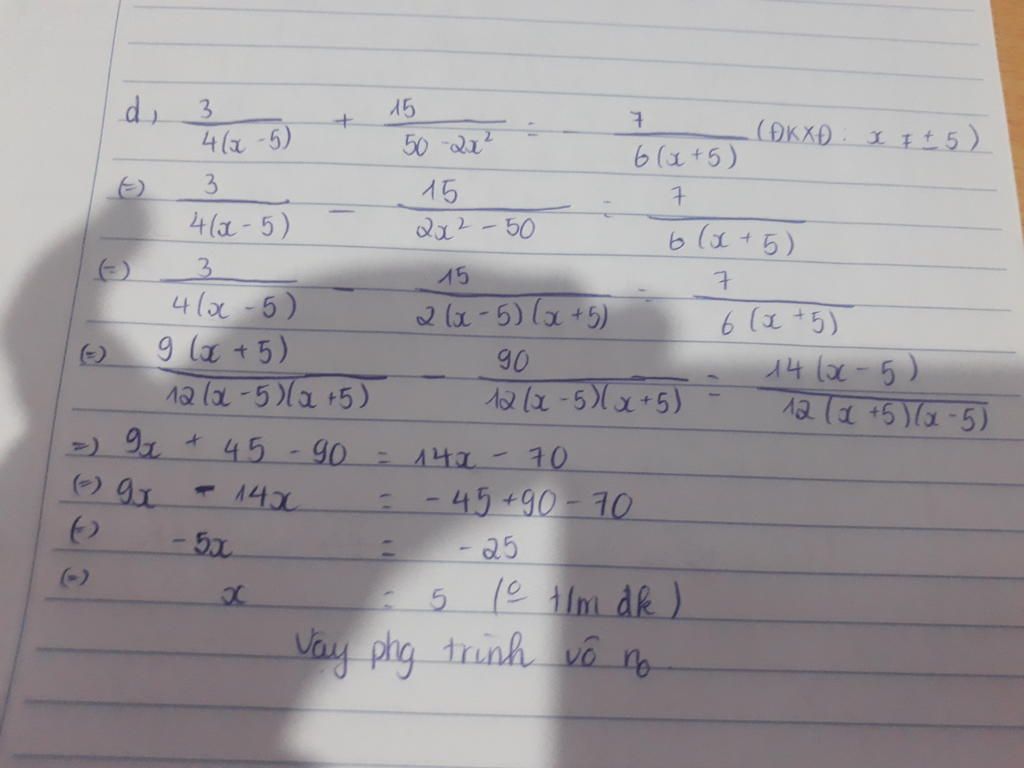 d, 3/(4(x-5)) + 15/(50-2x²) = - 7/(6(x+5)) (ĐKXĐ: x ≠ ±5)
(=) 3/(4(x-5)) - 15/(2x²-50) = 7/(6(x+5))
(=) 3/(4(x-5)) - 15/(2(x-5)(x+5)) = 7/(6(x+5))
(=) 9(x+5)/(12(x-5)(x+5)) - 90/(12(x-5)(x+5)) = 14(x-5)/(12(x+5)(x-5))
=) 9x + 45 - 90 = 14x - 70
(=) 9x - 14x = -45+90-70
(=) -5x = -25
(=) x = 5 (o t/m đk)
Vậy phg trình vô no